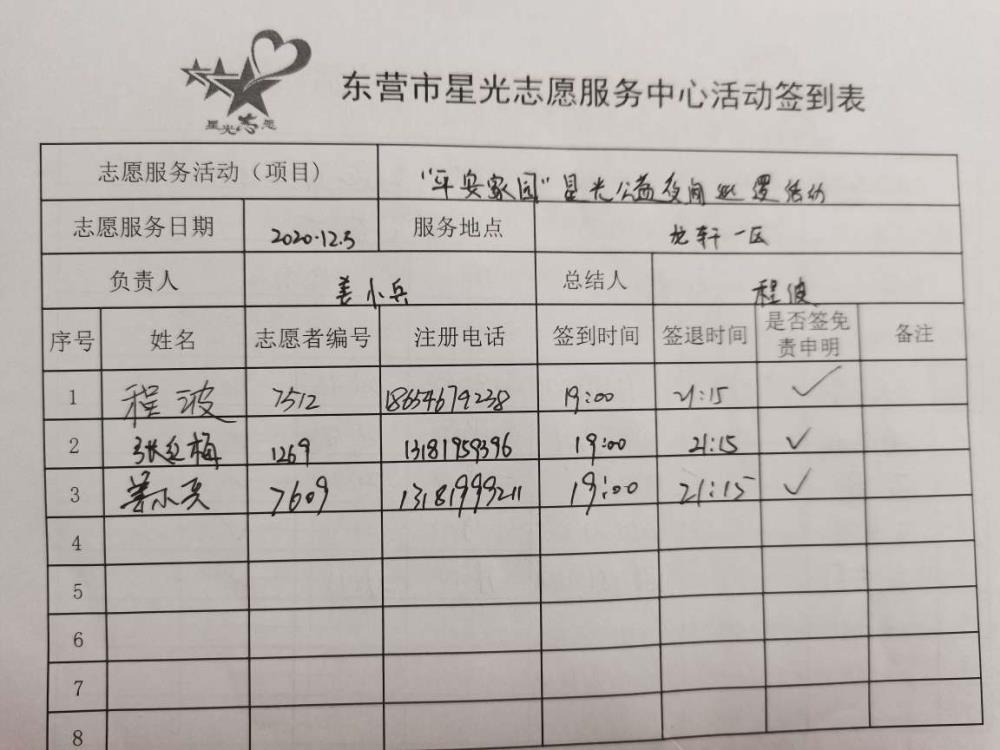 星光志愿
东营市星光志愿服务中心活动签到表
志愿服务活动（项目） “平安家园”星光公益夜间巡逻活动
志愿服务日期 2020.12.5 服务地点 龙轩一区
负责人 姜小兵 总结人 程波
序号 姓名 志愿者编号 注册电话 签到时间 签退时间 是否签免责申明 备注
1 程波 7512 18654679238 19:00 21:15 ✓
2 张红梅 1269 13181959396 19:00 21:15 ✓
3 姜小兵 7609 13181999211 19:00 21:15 ✓
4
5
6
7
8